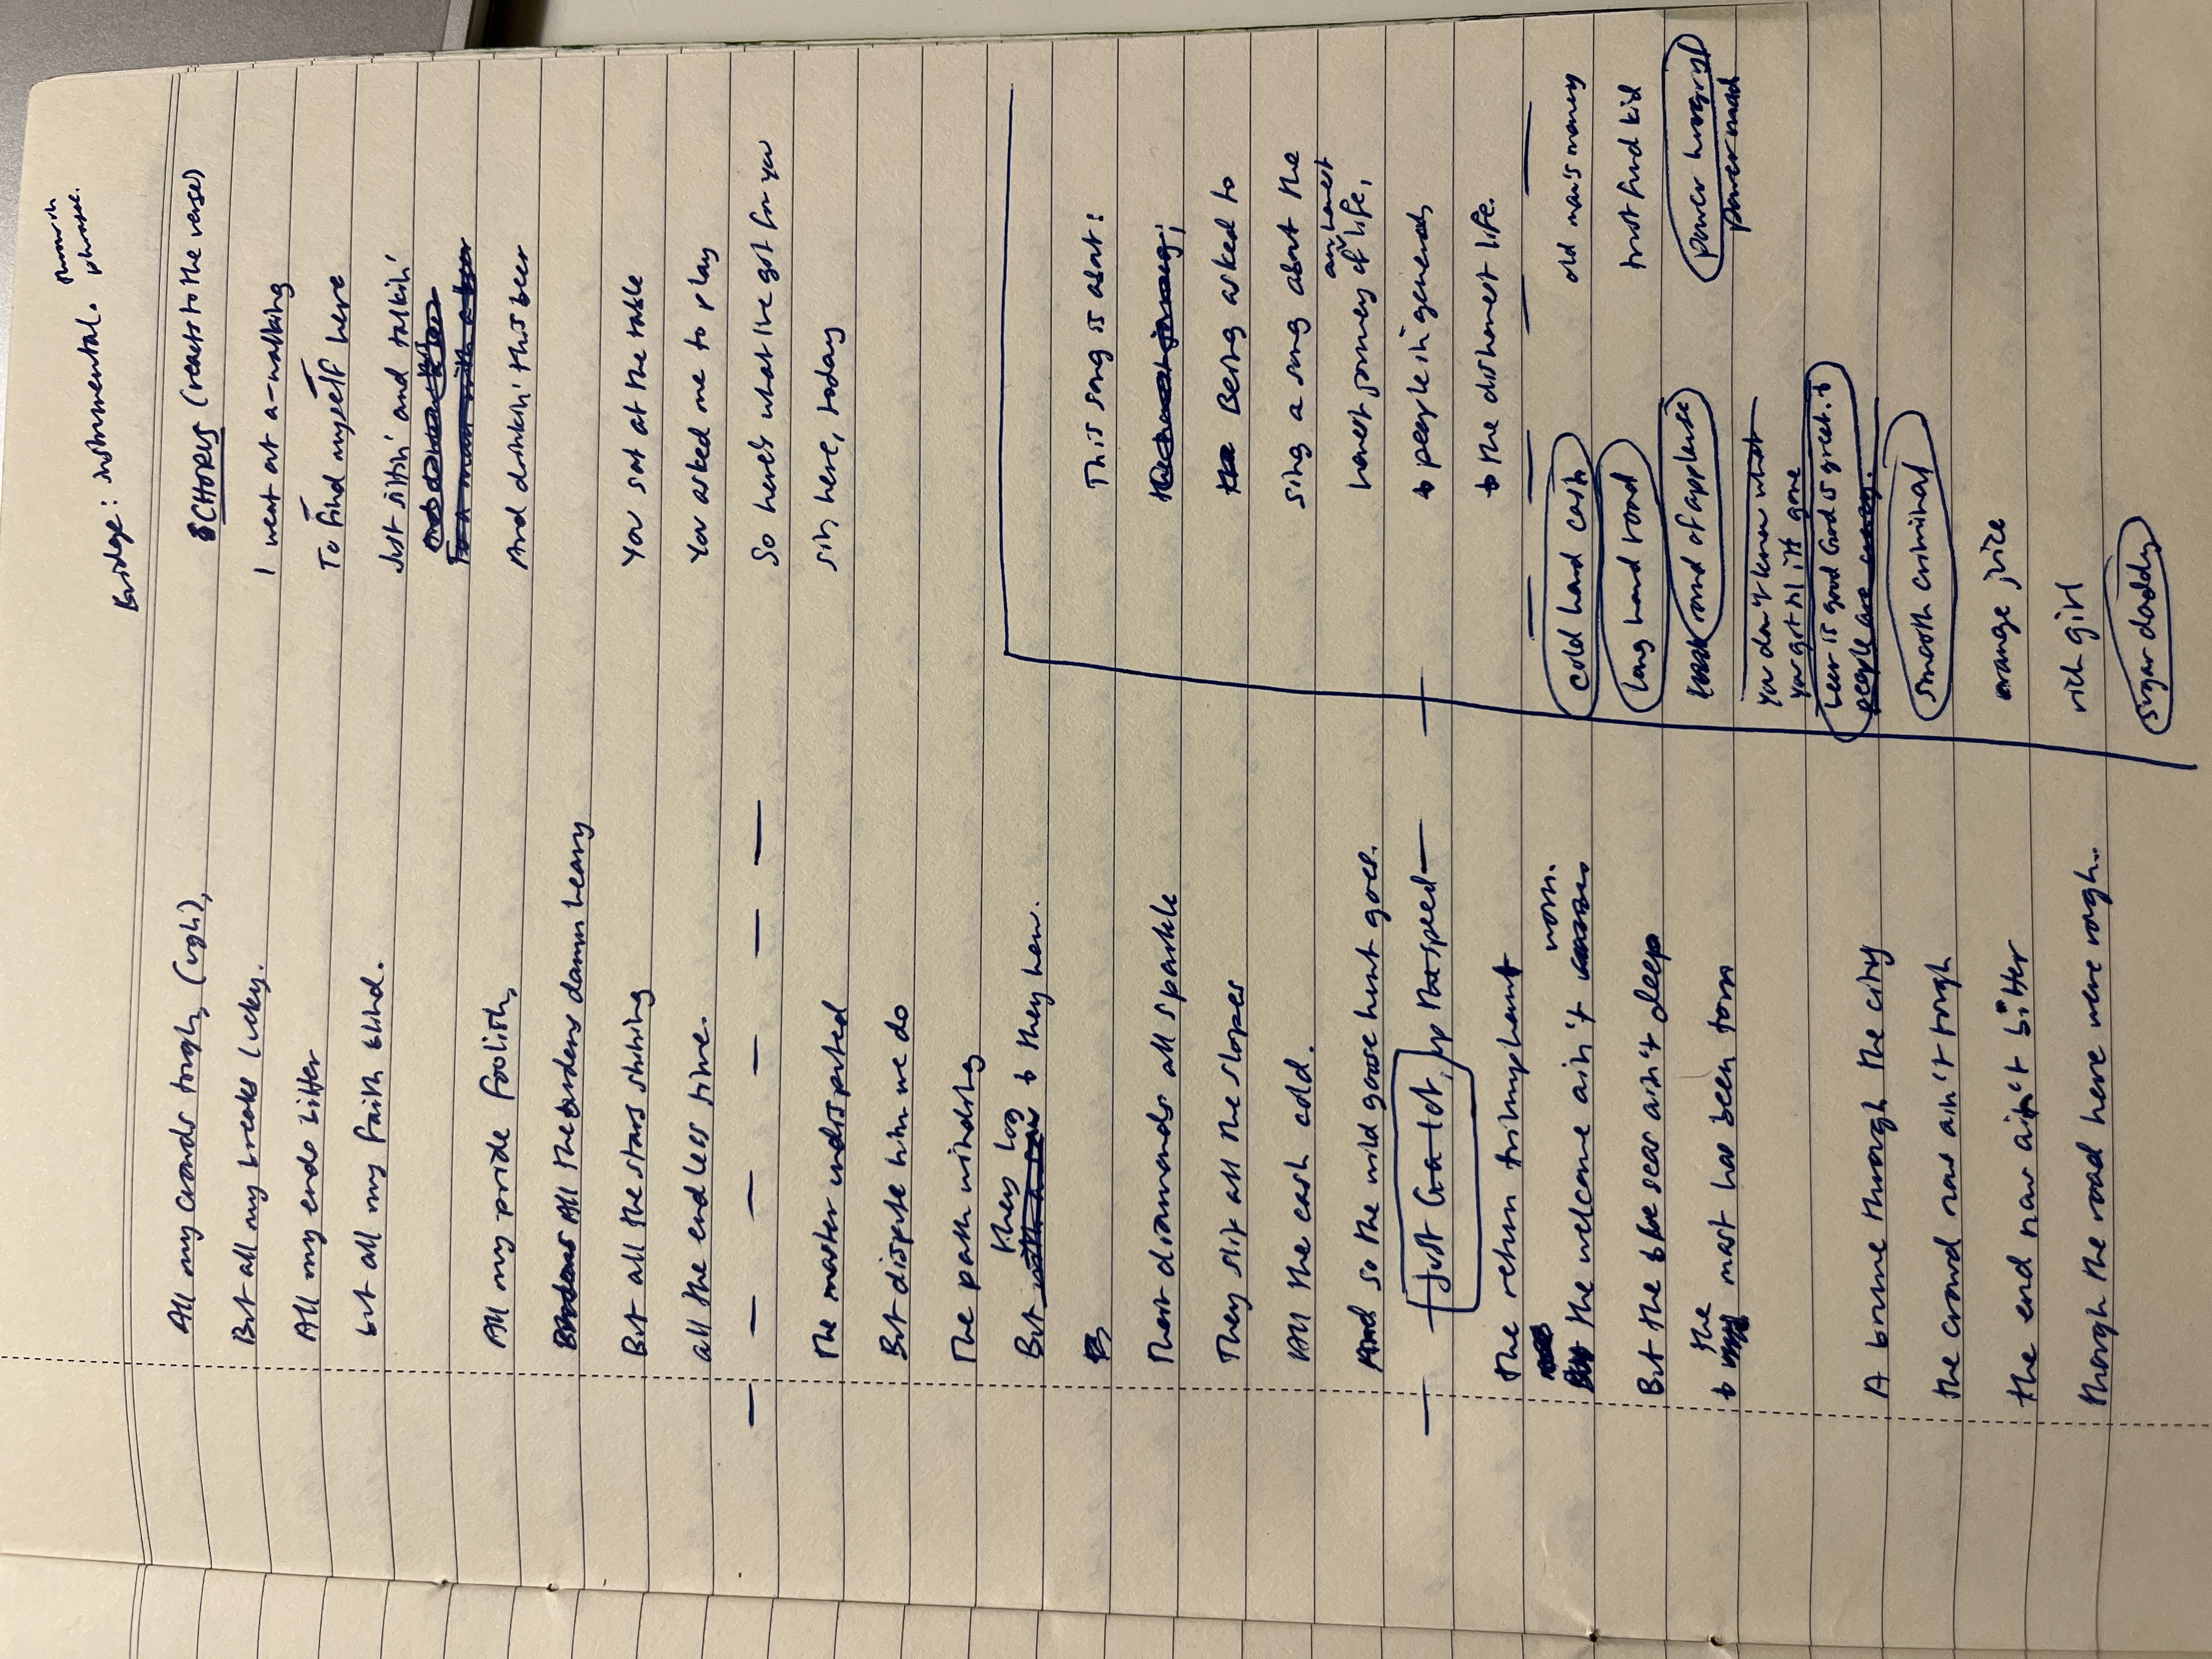 Bridge: instrumental.
phrase.
All my crowds tough, (ugh),
But all my breaks lucky.
All my ends bitter
but all my faith blind.
All my pride foolish,
All the burdens damn heavy
But all the stars shining
all the endless time.
The master undisputed
But dispute him we do
The path winding
But they hog & they hew.
Their diamonds all sparkle
They slip all the slopes
All the cash cold.
And so the wild goose hunt goes.
Just Goa-lot, up to speed
The return triumphant
the welcome ain't worn.
But the scar ain't deep
& the mast has been torn
A bruise through the city
the crowd now ain't tough
the end now ain't bitter
though the road here were rough..
CHORUS (reacts to the verse)
I went out a-walking
To find myself here
Just sittin' and talkin'
And drinkin' this beer
You sat at the table
You asked me to play
So here's what I've got for you
sir, here, today
This song is about:
Being asked to
sing a song about the
honest journey of an honest life,
to people in general,
& the dishonest life.
cold hard cash
long hard road
round of applause
you don't know what
you got til it's gone
beer is good God is great. &
people are crazy.
smooth criminal
orange juice
rich girl
sugar daddy
old man's money
trust fund kid
power hungry
power mad